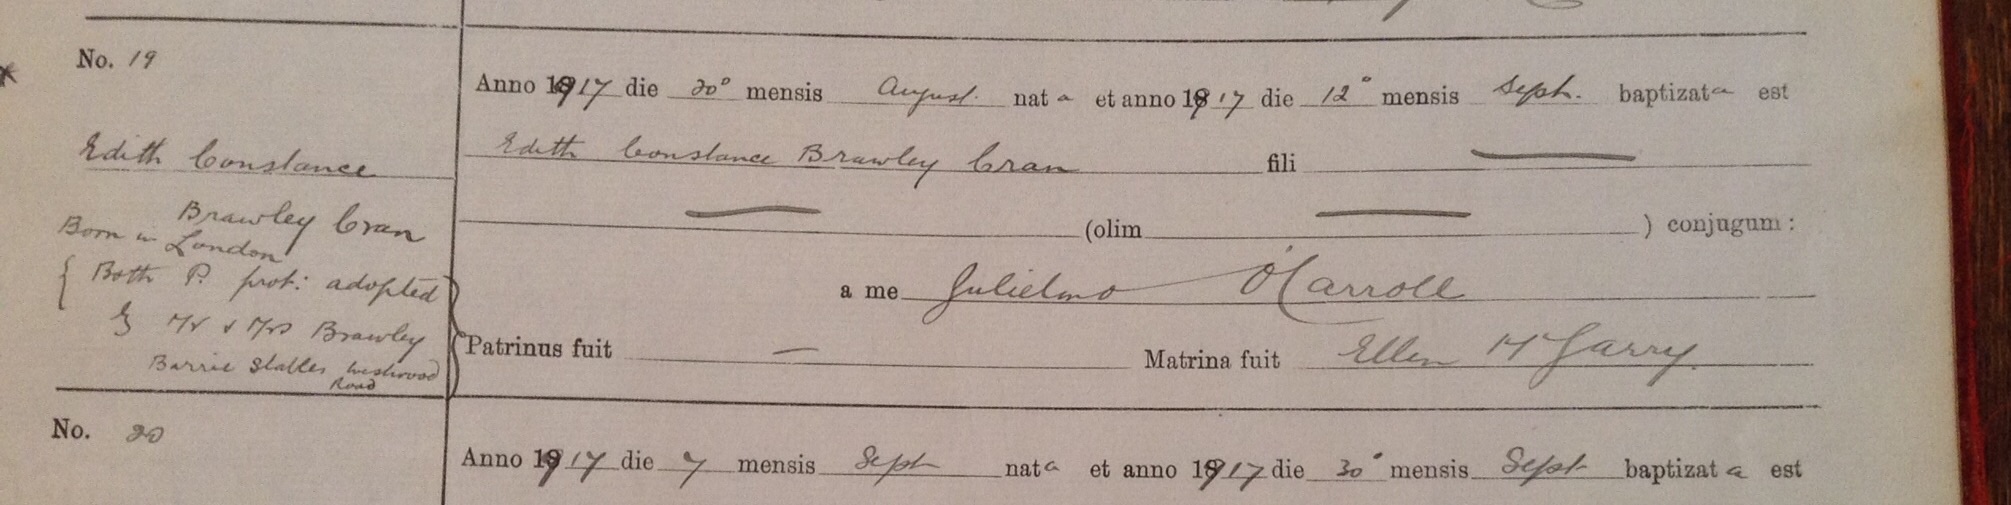 No. 19
Anno 1917 die 20° mensis August. nata et anno 1917 die 12° mensis Sept. baptizata est
Edith Constance
Edith Constance Brawley Cran fili
Brawley Cran
Born in London
(olim ) conjugum:
Both P. prot: adopted
a me Gulielmo O'Carroll
by Mr & Mrs Brawley
Patrinus fuit — Matrina fuit Ellen McGarry.
Barrie Stables Westwood
Road
No. 20
Anno 1917 die 7 mensis Sept nata et anno 1917 die 30° mensis Sept baptizata est